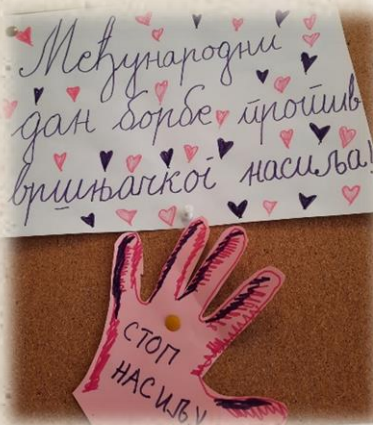 Међународни
дан борбе против
вршњачког насиља!
СТОП
НАСИЉУ